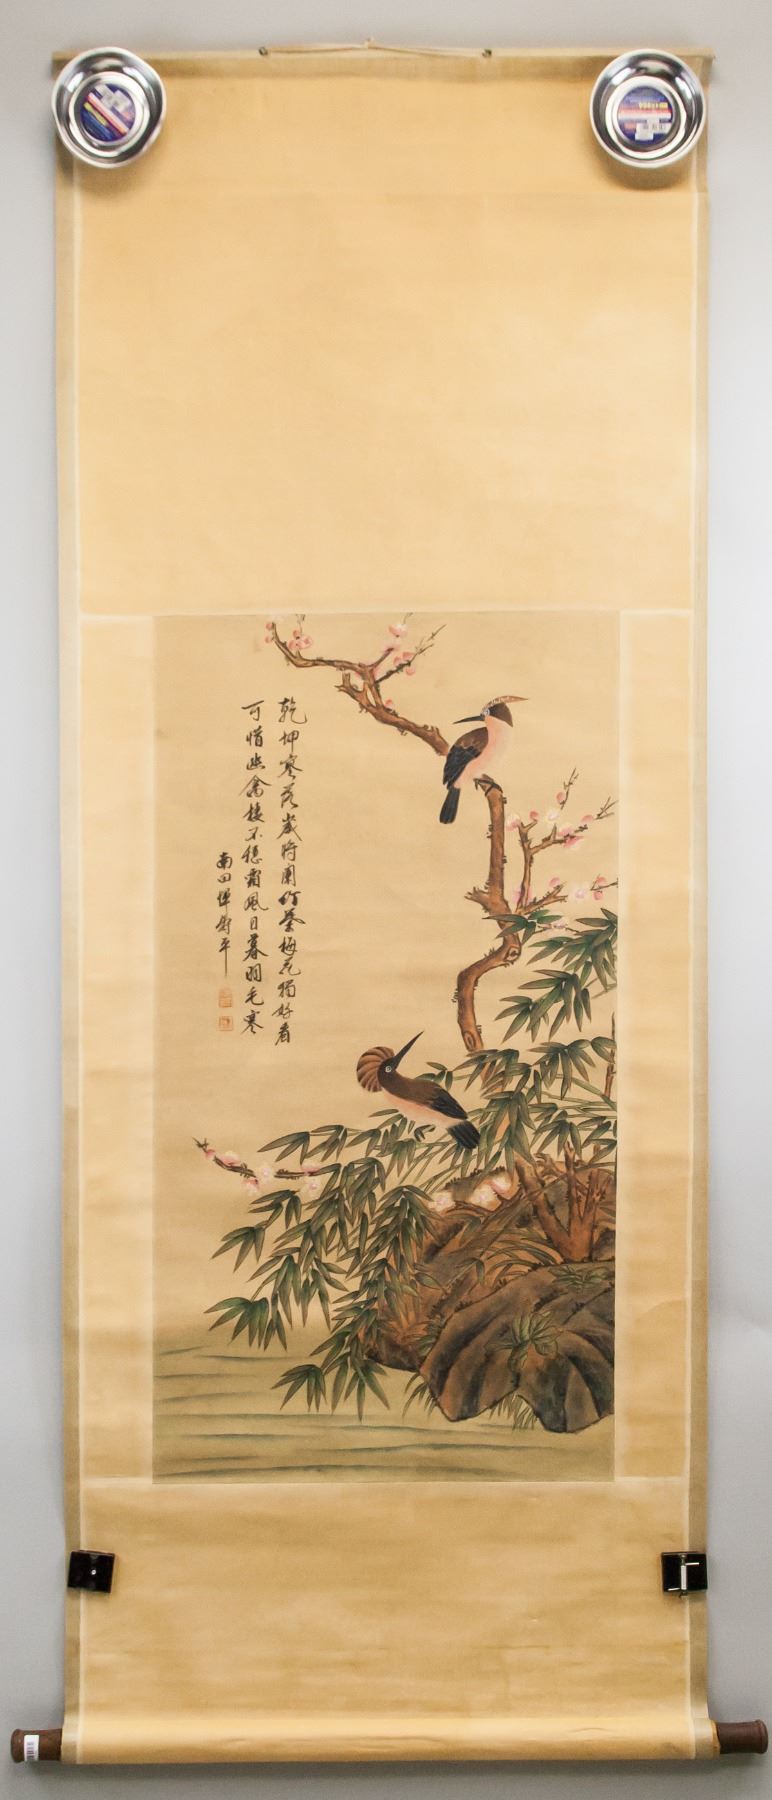 乾坤寥落歲將闌竹葉梅花獨好看
可惜幽禽棲不穩霜風日暮羽毛寒
南田惲壽平